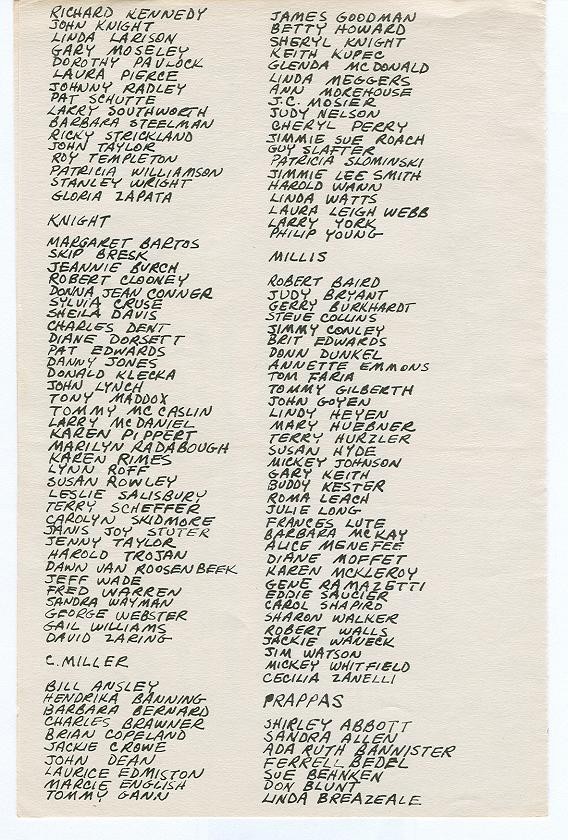 RICHARD KENNEDY
JOHN KNIGHT
LINDA LARISON
GARY MOSELEY
DOROTHY PAVLOCK
LAURA PIERCE
JOHNNY RADLEY
PAT SCHUTTE
LARRY SOUTHWORTH
BARBARA STEELMAN
RICKY STRICKLAND
JOHN TAYLOR
ROY TEMPLETON
PATRICIA WILLIAMSON
STANLEY WRIGHT
GLORIA ZAPATA
KNIGHT
MARGARET BARTOS
SKIP BRESK
JEANNIE BURCH
ROBERT CLOONEY
DONNA JEAN CONNER
SYLVIA CRUSE
SHEILA DAVIS
CHARLES DENT
DIANE DORSETT
PAT EDWARDS
DANNY JONES
DONALD KLECKA
JOHN LYNCH
TONY MADDOX
TOMMY MCCASLIN
LARRY MCDANIEL
KAREN PIPPERT
MARILYN RADABOUGH
KAREN RIMES
LYNN ROFF
SUSAN ROWLEY
LESLIE SALISBURY
TERRY SCHEFFER
CAROLYN SKIDMORE
JANIS JOY STUTER
JENNY TAYLOR
HAROLD TROJAN
DAWN VAN ROOSENBEEK
JEFF WADE
FRED WARREN
SANDRA WAYMAN
GEORGE WEBSTER
GAIL WILLIAMS
DAVID ZARING
C. MILLER
BILL ANSLEY
HENDRIKA BANNING
BARBARA BERNARD
CHARLES BRAWNER
BRIAN COPELAND
JACKIE CROWE
JOHN DEAN
LAURICE EDMISTON
MARCIE ENGLISH
TOMMY GANN
JAMES GOODMAN
BETTY HOWARD
SHERYL KNIGHT
KEITH KUPEC
GLENDA MCDONALD
LINDA MEGGERS
ANN MOREHOUSE
J.C. MOSIER
JUDY NELSON
CHERYL PERRY
JIMMIE SUE ROACH
GUY SLAFTER
PATRICIA SLOMINSKI
JIMMIE LEE SMITH
HAROLD WANN
LINDA WATTS
LAURA LEIGH WEBB
LARRY YORK
PHILIP YOUNG
MILLIS
ROBERT BAIRD
JUDY BRYANT
GERRY BURKHARDT
STEVE COLLINS
JIMMY CONLEY
BRIT EDWARDS
DONN DUNKEL
ANNETTE EMMONS
TOM FARIA
TOMMY GILBERTH
JOHN GOYEN
LINDY HEYEN
MARY HUEBNER
TERRY HURZLER
SUSAN HYDE
MICKEY JOHNSON
GARY KEITH
BUDDY KESTER
ROMA LEACH
JULIE LONG
FRANCES LUTE
BARBARA MCKAY
ALICE MENEFEE
DIANE MOFFET
KAREN MCKLEROY
GENE RAMAZETTI
EDDIE SAUCIER
CAROL SHAPIRO
SHARON WALKER
ROBERT WALLS
JACKIE WANECK
JIM WATSON
MICKEY WHITFIELD
CECILIA ZANELLI
PRAPPAS
SHIRLEY ABBOTT
SANDRA ALLEN
ADA RUTH BANNISTER
FERRELL BEDEL
SUE BEHNKEN
DON BLUNT
LINDA BREAZEALE